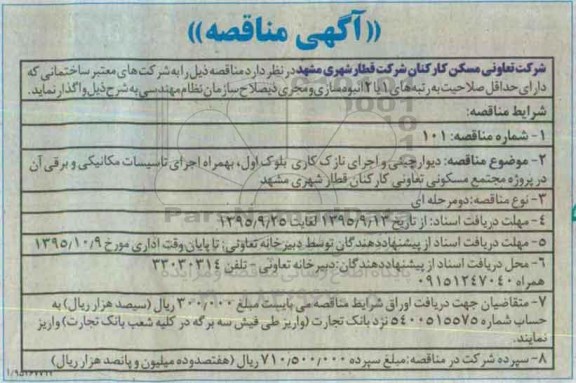 ((آگهی مناقصه))
شرکت تعاونی مسکن کارکنان شرکت قطار شهری مشهد در نظر دارد مناقصه ذیل را به شرکت های معتبر ساختمانی که
دارای حداقل صلاحیت به رتبه های ۱ یا ۲ انبوه سازی و مجری ذیصلاح سازمان نظام مهندسی به شرح ذیل واگذار نماید.
شرایط مناقصه:
۱- شماره مناقصه: ۱۰۱
۲- موضوع مناقصه: دیوارچینی و اجرای نازک کاری بلوک اول، بهمراه اجرای تاسیسات مکانیکی و برقی آن
در پروژه مجتمع مسکونی تعاونی کارکنان قطار شهری مشهد
۳- نوع مناقصه: دو مرحله ای
۴- مهلت دریافت اسناد: از تاریخ ۱۳۹۵/۹/۱۳ لغایت ۱۳۹۵/۹/۲۵
۵- مهلت دریافت اسناد از پیشنهاددهندگان توسط دبیرخانه تعاونی: تا پایان وقت اداری مورخ ۱۳۹۵/۱۰/۹
۶- محل دریافت اسناد از پیشنهاددهندگان: دبیرخانه تعاونی - تلفن ۳۳۰۳۰۳۱۴
همراه ۰۹۱۵۱۲۴۷۰۴۰
۷- متقاضیان جهت دریافت اوراق شرایط مناقصه می بایست مبلغ ۳۰۰/۰۰۰ ریال (سیصد هزار ریال) به
حساب شماره ۵۴۰۰۵۱۵۵۷۵ نزد بانک تجارت (واریز طی فیش سه برگه در کلیه شعب بانک تجارت) واریز
نمایند.
۸- سپرده شرکت در مناقصه: مبلغ سپرده ۷۱۰/۵۰۰/۰۰۰ ریال (هفتصدوده میلیون و پانصد هزار ریال)